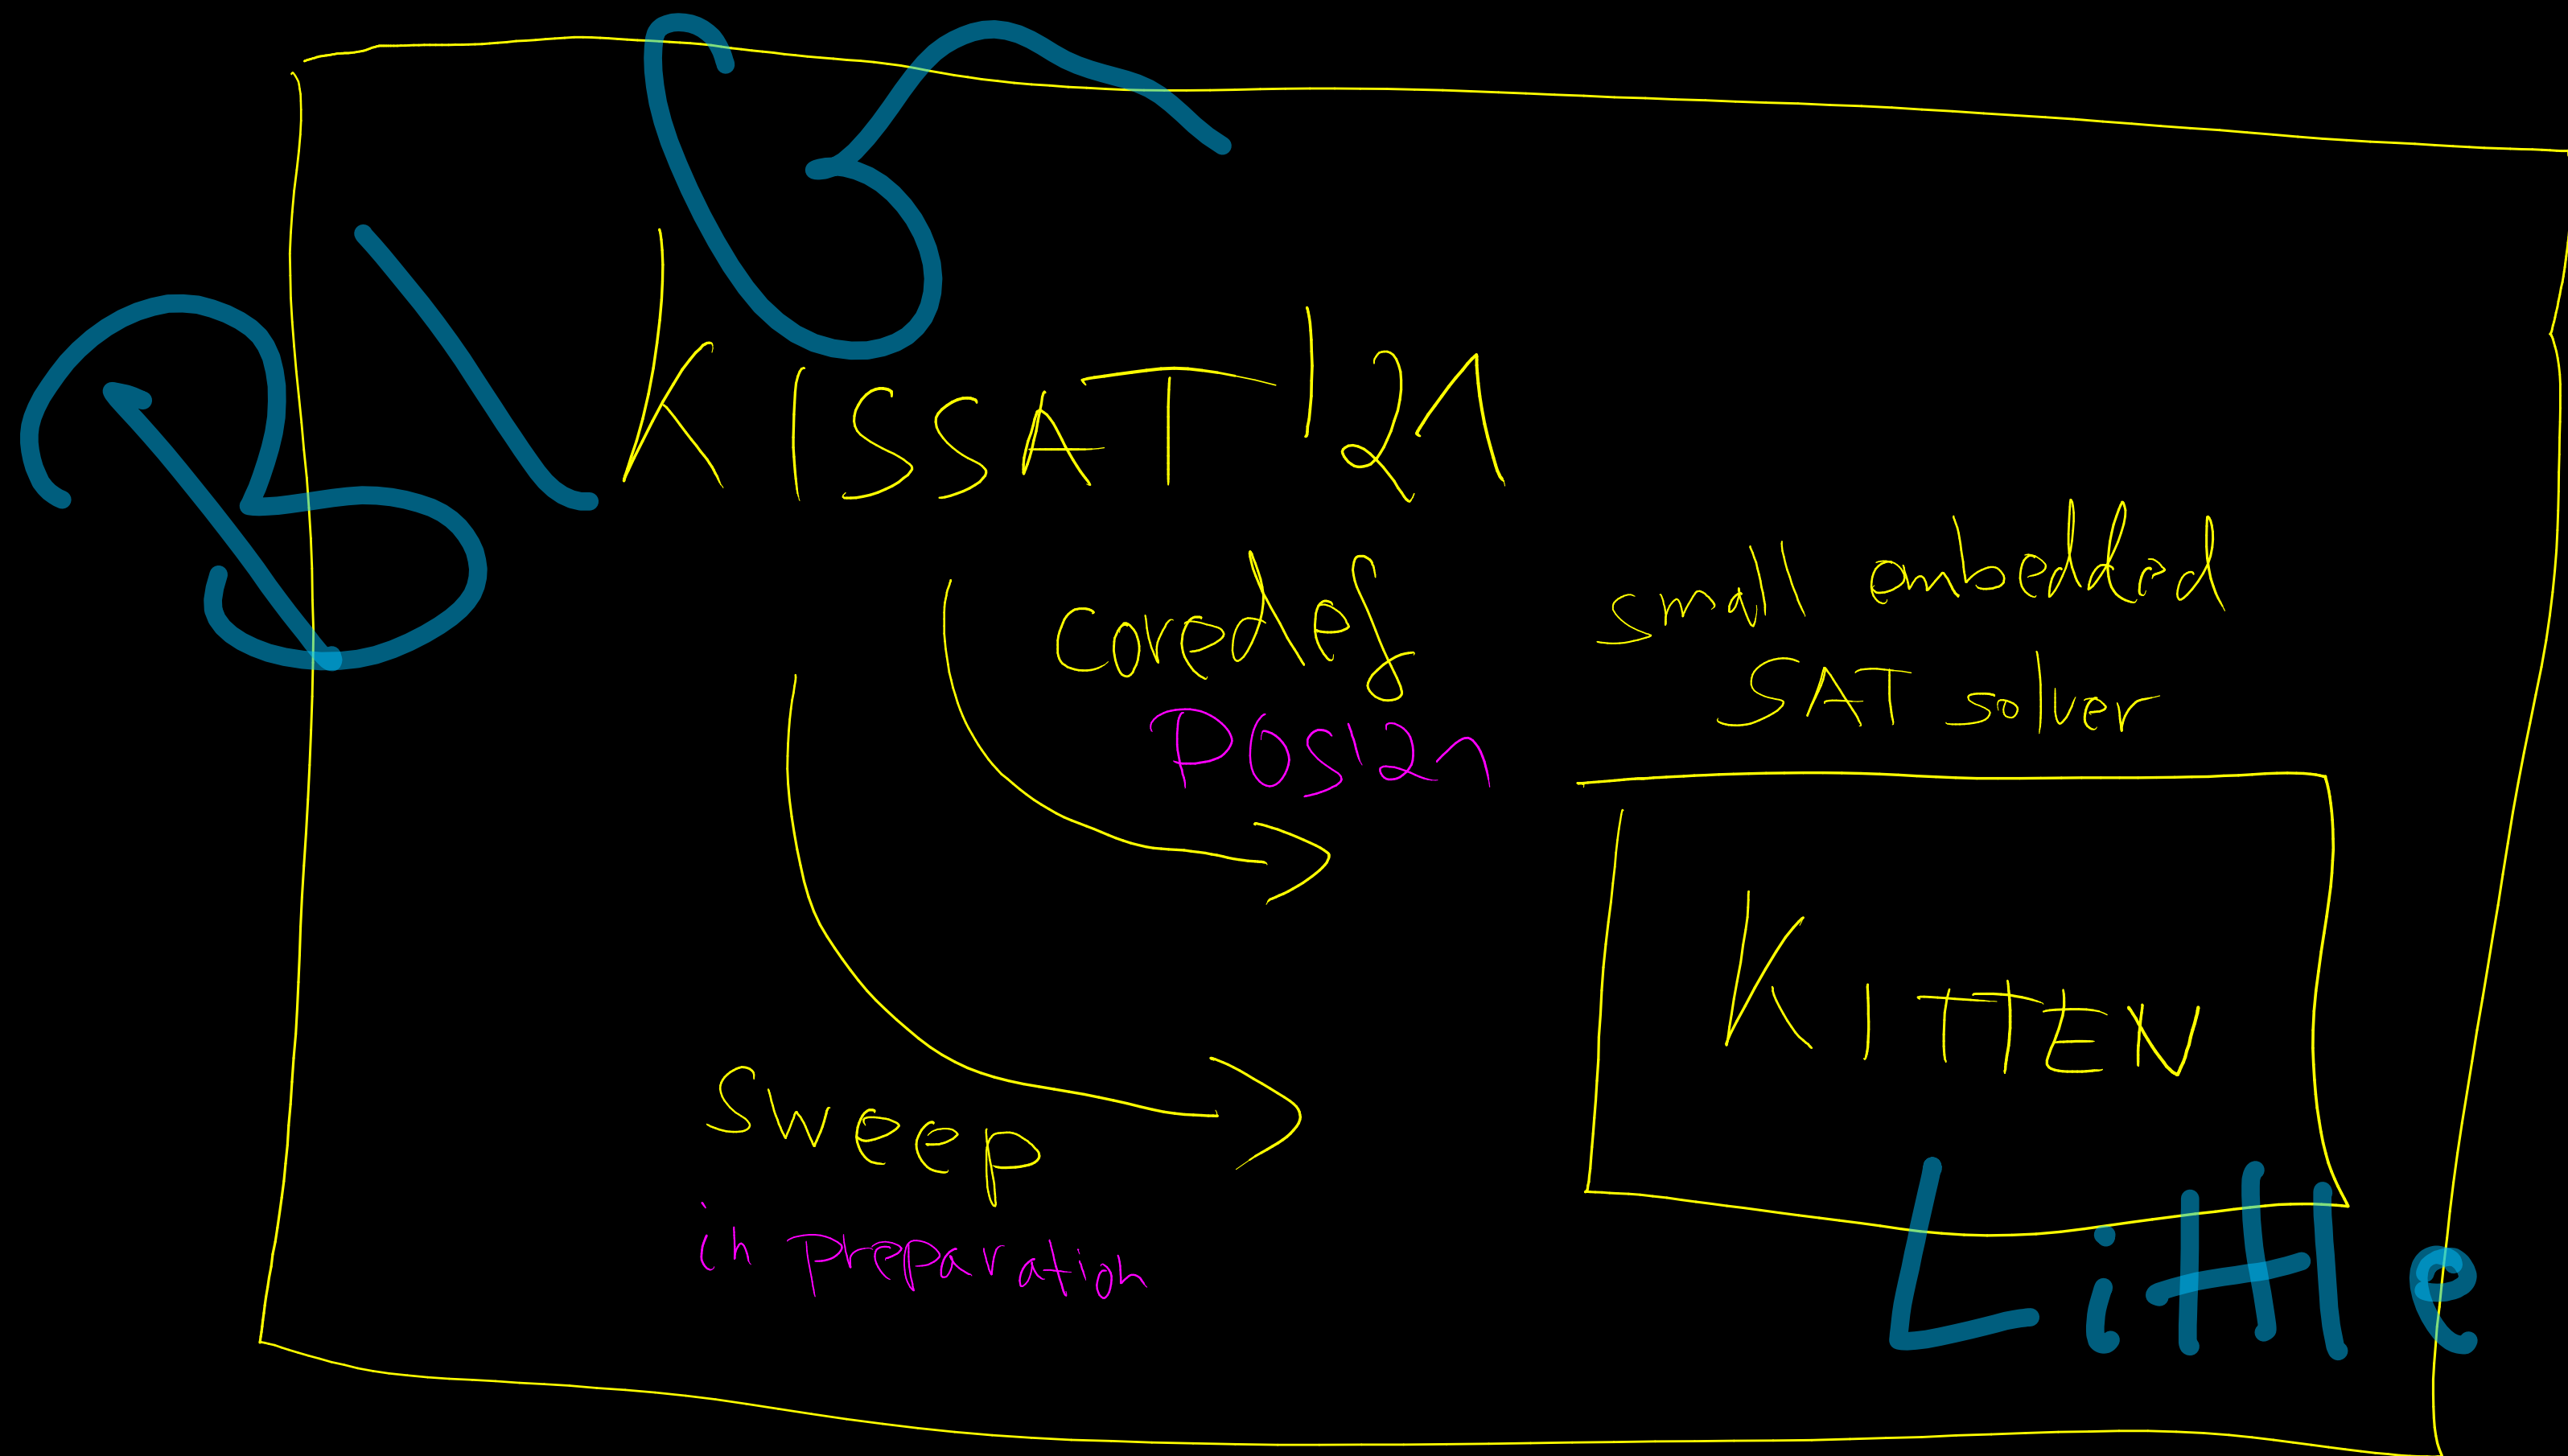 BIG
KISSAT'21
coredef
POS'21
small embedded
SAT solver
KITTEN
sweep
in preparation
Little